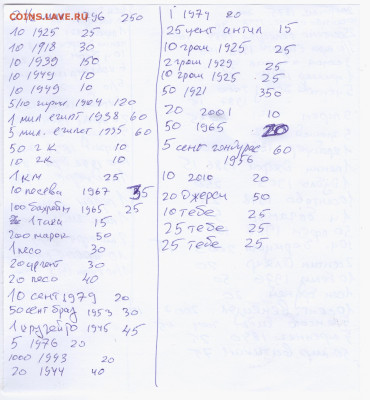 COINSS.SU
CAVE.RU
1996 250
10 1925 25
10 1918 30
10 1939 150
10 1949 10
10 1949 10
5/10 1904 120
1 мил египт 1938 60
5 мил. египет 1935 60
50 2 К 10
10 2К 10
1 км 25
10 песева 1967 35
100 бахрейн 1965 25
1 така 15
200 марок 50
1 песо 30
20 аргент 30
20 песо 40
10 сент 1979 20
50 сент браз 1953 30
1 крузейро 1945 45
5 1976 20
1000 1993 20
20 1944 40
1 1979 80
25 цент антил 15
10 грош 1925 25
2 грош 1929 25
10 грош 1925 25
50 1921 350
20 2001 10
50 1965 20
5 сент гондурас 60
1956
10 2010 20
20 Джерси 50
10 тебе 25
25 тебе 25
25 тебе 25